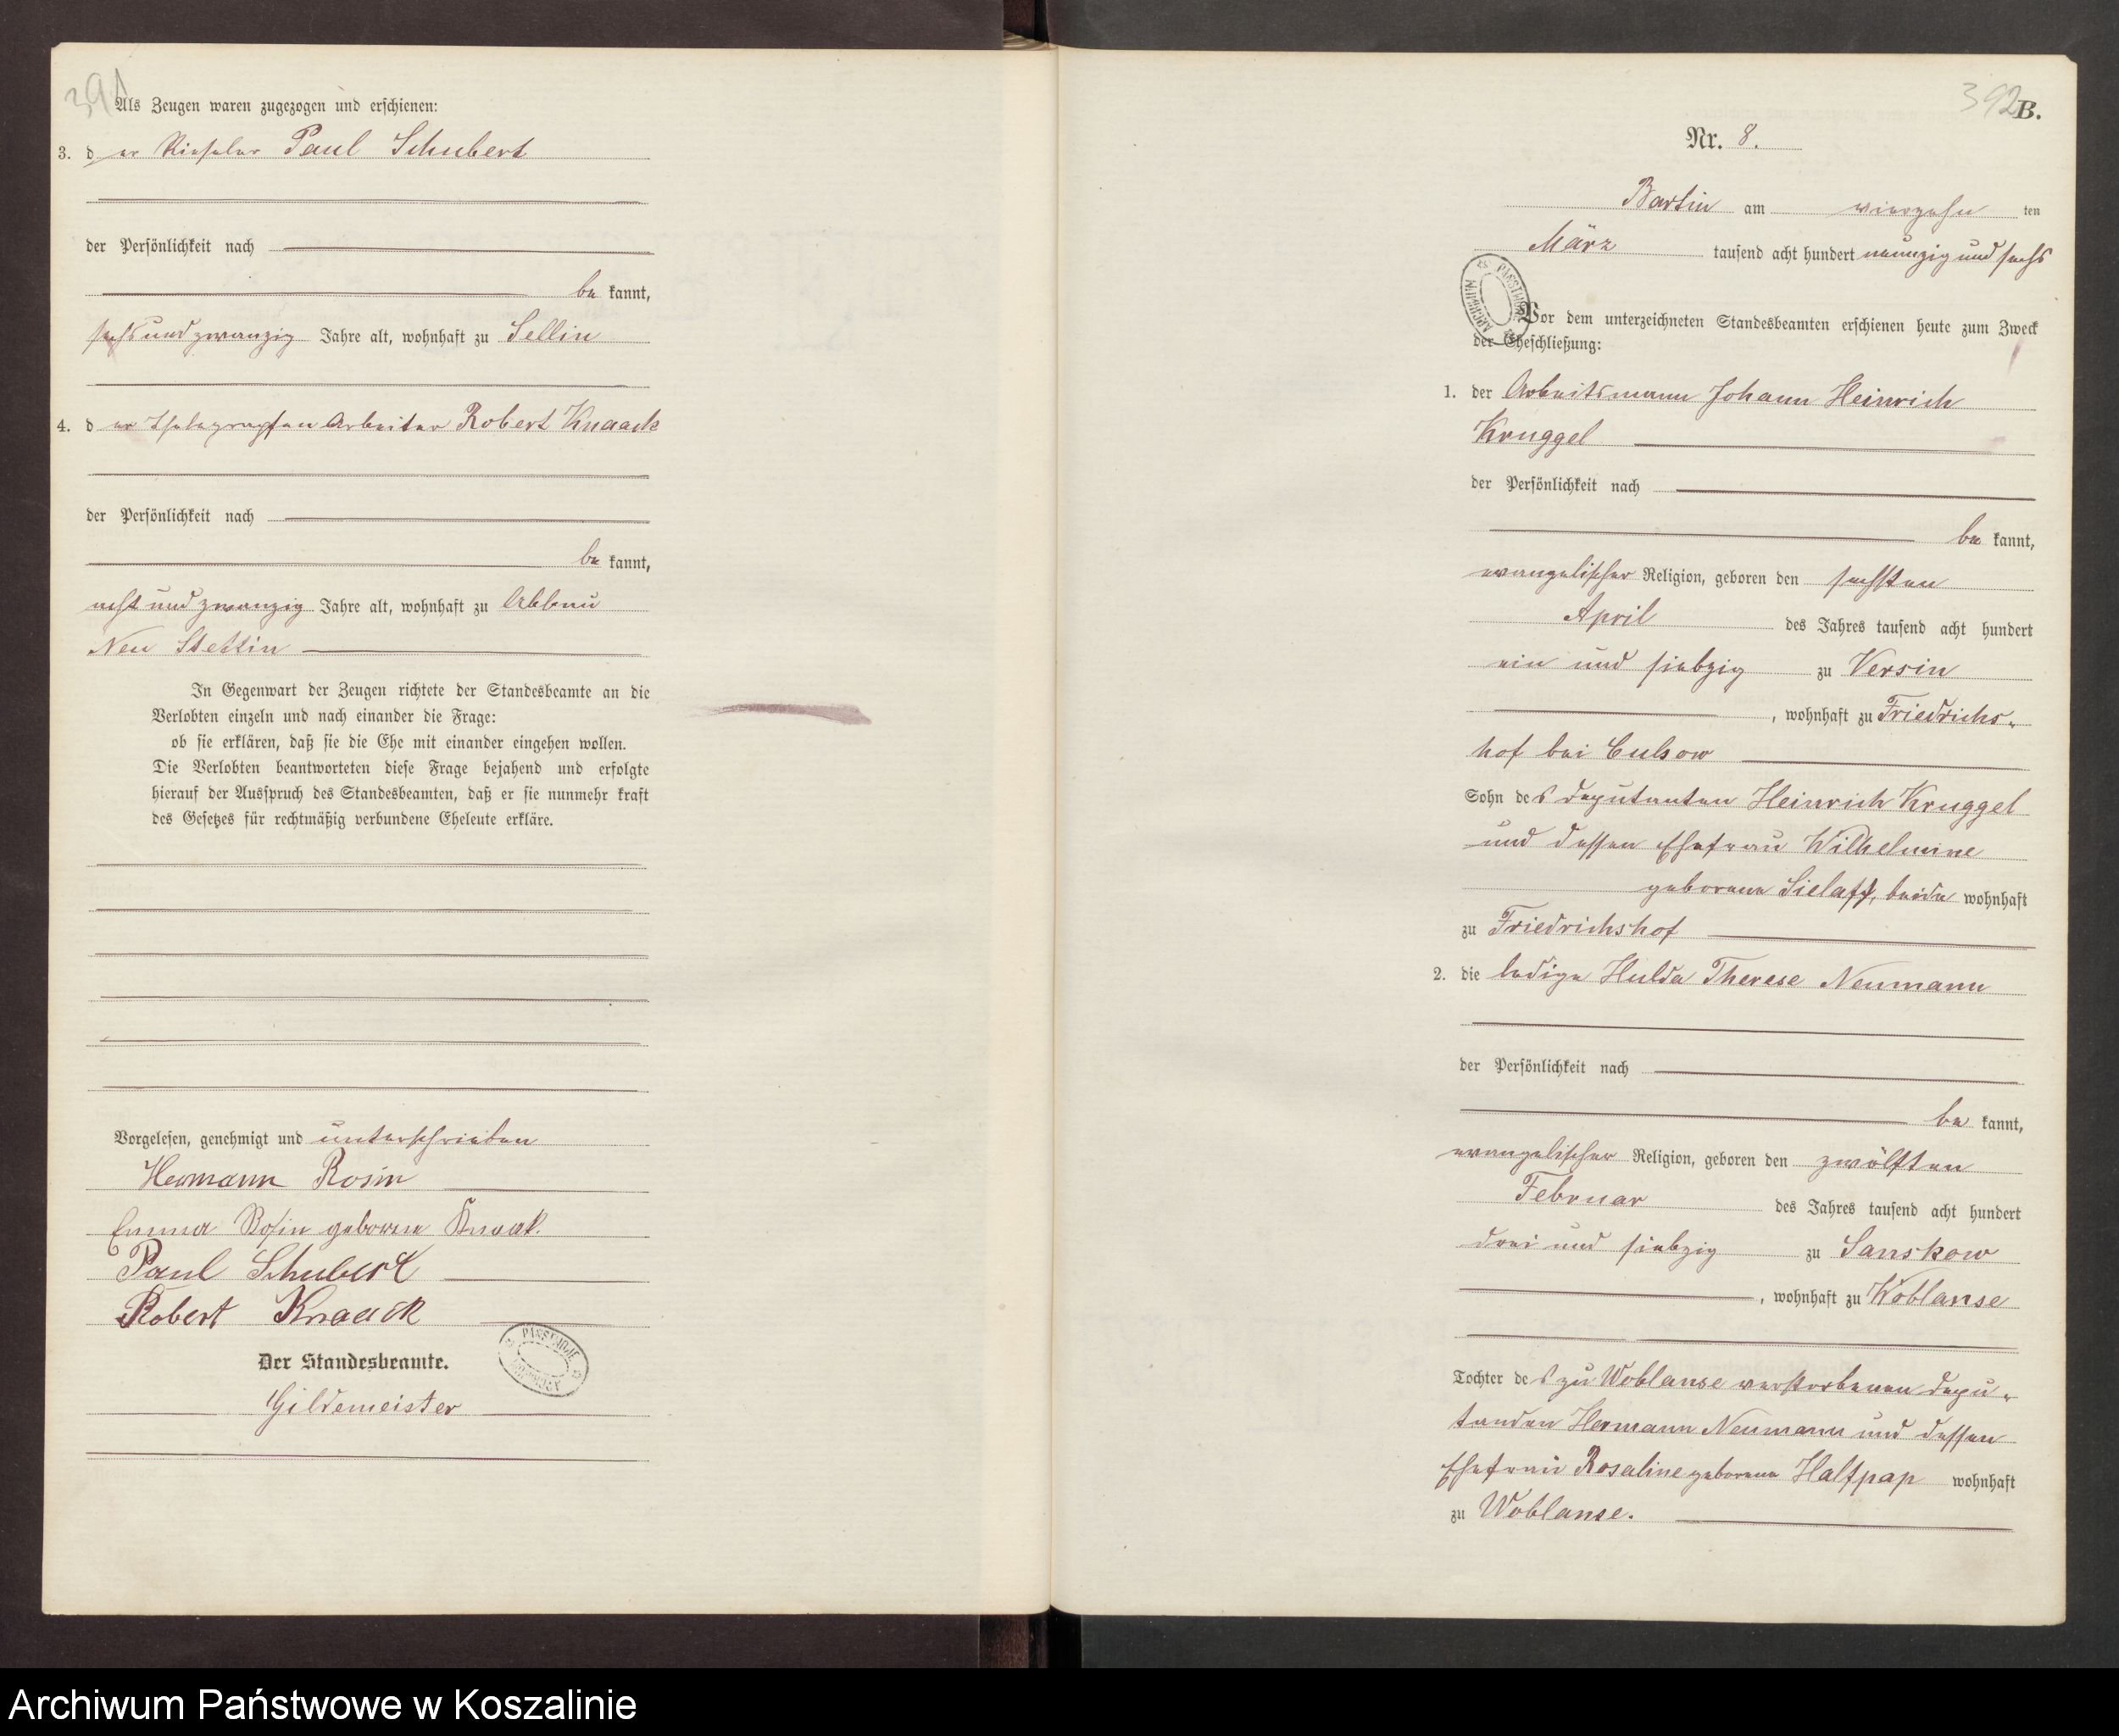 391
Als Zeugen waren zugezogen und erschienen:
3. der Rieseler Paul Schubert
der Persönlichkeit nach
be kannt,
sechsundzwanzig Jahre alt, wohnhaft zu Sellin
4. d er Thelegraphen Arbeiter Robert Knaack
der Persönlichkeit nach
be kannt,
acht und zwanzig Jahre alt, wohnhaft zu Abbau
Neu Stettin
In Gegenwart der Zeugen richtete der Standesbeamte an die
Verlobten einzeln und nach einander die Frage:
ob sie erklären, daß sie die Ehe mit einander eingehen wollen.
Die Verlobten beantworteten diese Frage bejahend und erfolgte
hierauf der Ausspruch des Standesbeamten, daß er sie nunmehr kraft
des Gesetzes für rechtmäßig verbundene Eheleute erkläre.
Vorgelesen, genehmigt und unterschrieben
Hermann Rosin
Emma Rosin geborene Knaak.
Paul Schubert
Robert Knaack
Der Standesbeamte.
Gildemeister
392
B.
Nr. 8.
Bartin am vierzehn ten
März tausend acht hundert neunzig und sechs
Vor dem unterzeichneten Standesbeamten erschienen heute zum Zweck
der Eheschließung:
1. der Arbeitsmann Johann Heinrich
Kruggel
der Persönlichkeit nach
be kannt,
evangelischer Religion, geboren den sechsten
April des Jahres tausend acht hundert
ein und siebzig zu Versin
, wohnhaft zu Friedrichs-
hof bei Culsow
Sohn des Deputanten Heinrich Kruggel
und dessen Ehefrau Wilhelmine
geborene Sielaff, beide wohnhaft
zu Friedrichshof
2. die ledige Hulda Therese Neumann
der Persönlichkeit nach
be kannt,
evangelischer Religion, geboren den zwölften
Februar des Jahres tausend acht hundert
drei und siebzig zu Sanskow
, wohnhaft zu Woblanse
Tochter des zu Woblanse verstorbenen Depu-
tanden Hermann Neumann und dessen
Ehefrau Rosaline geborene Halfpap wohnhaft
zu Woblanse.
Archiwum Państwowe w Koszalinie